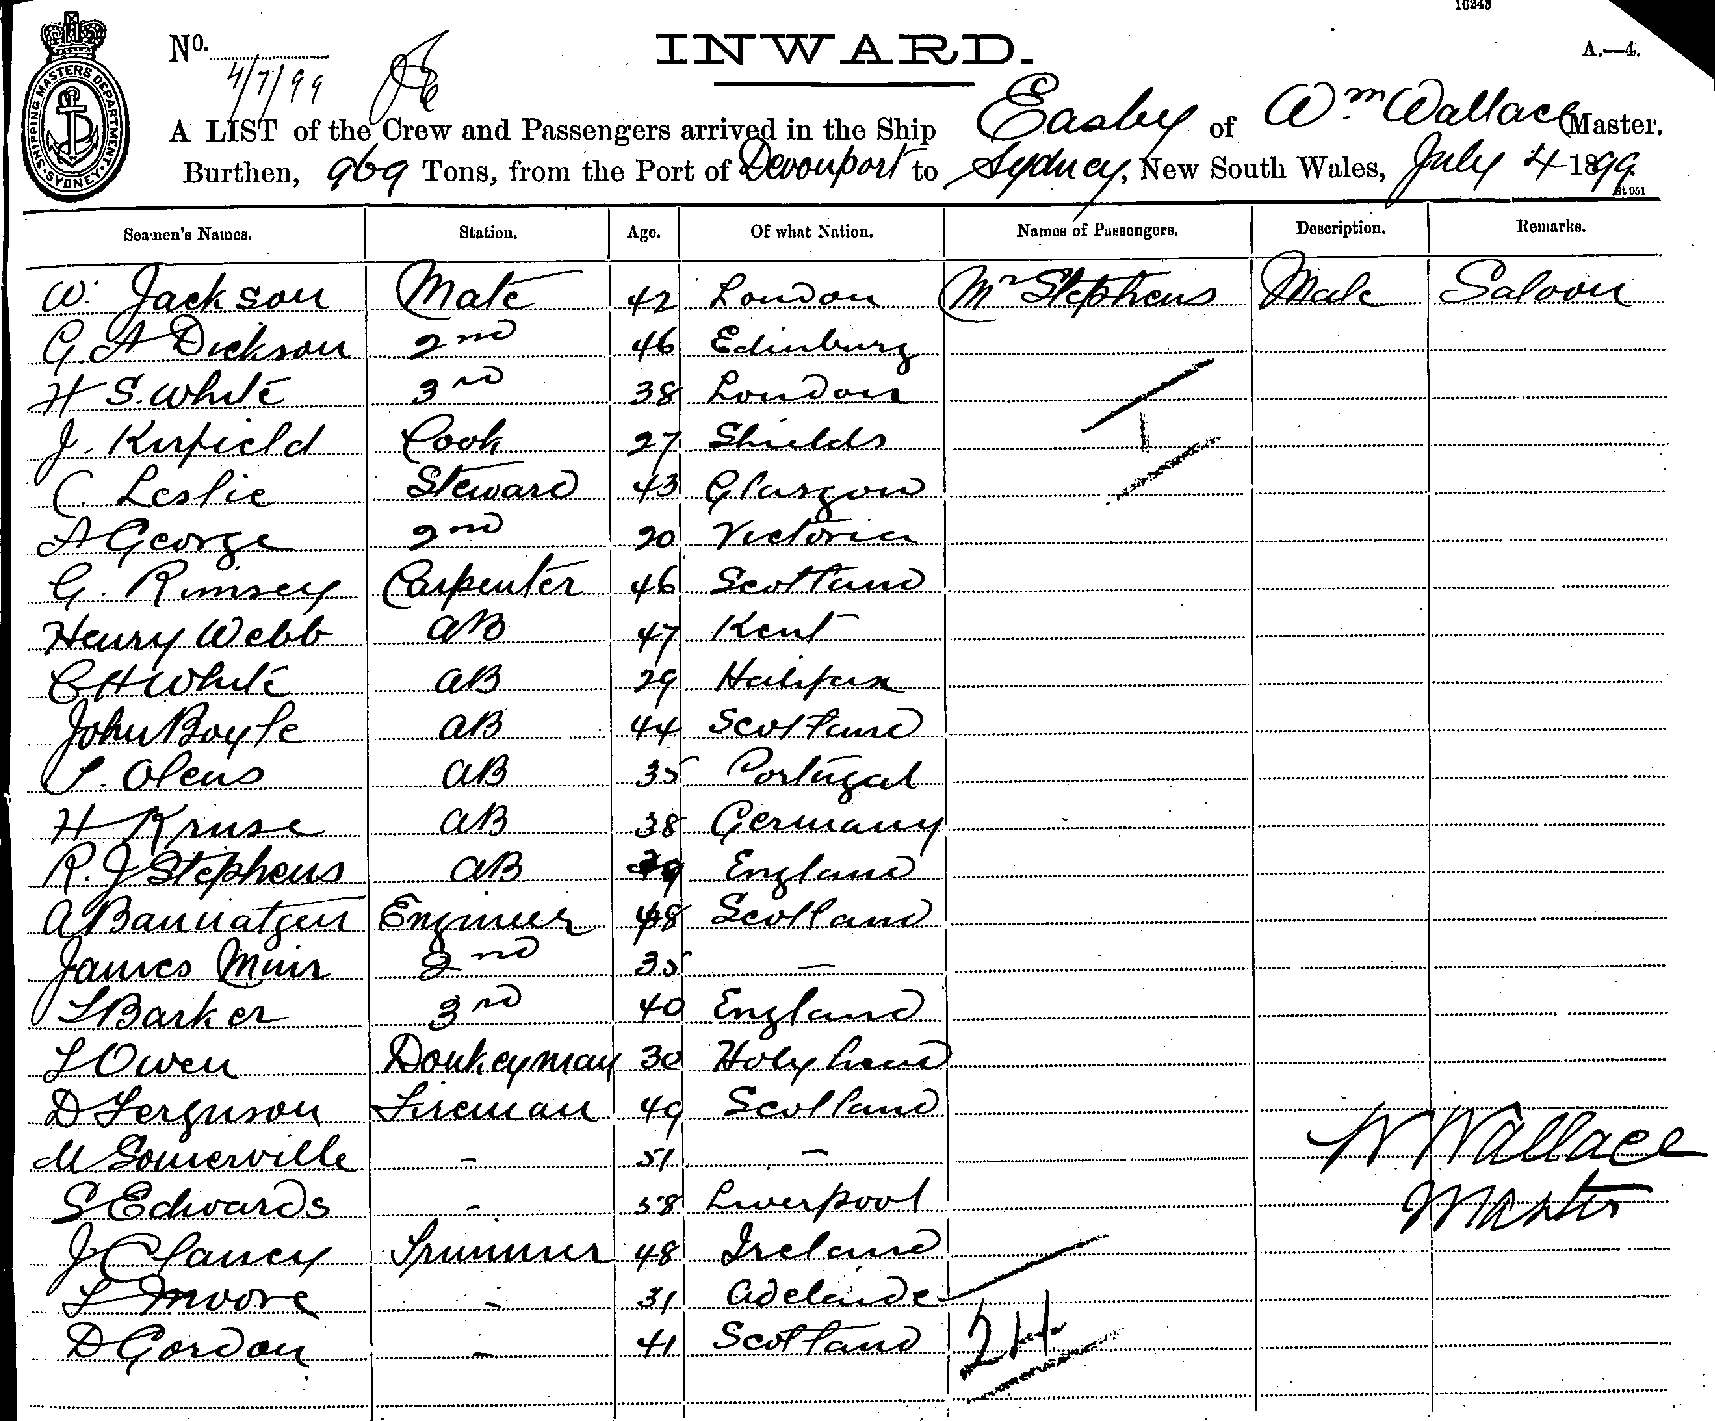 10243
No. 4/7/99
INWARD.
A.—4.
SHIPPING MASTERS DEPARTMENT SYDNEY
A LIST of the Crew and Passengers arrived in the Ship Easby of Wm Wallace Master.
Burthen, 969 Tons, from the Port of Devonport to Sydney, New South Wales, July 4 1899.
Seamen's Names. Station. Age. Of what Nation. Names of Passengers. Description. Remarks.
W. Jackson Mate 42 London Mr Stephens Male Saloon
G A Dickson 2nd 46 Edinburg
H S. White 3rd 38 London
J. Kirfield Cook 27 Shields
1
C. Leslie Steward 43 Glasgow
A George 2nd 20 Victoria
G. Rimsey Carpenter 46 Scotland
Henry Webb AB 47 Kent
C H White AB 29 Halifax
John Boyle AB 44 Scotland
Olens AB 35 Portugal
H Kruse AB 38 Germany
R. J Stephens AB England
A Bannatyn Engineer 48 Scotland
James Muir 2nd 35 —
Barker 3rd 40 England
Owen Donkeyman 30 Holyhead
D Ferguson Fireman 49 Scotland
W Wallace
M Somerville - 51 —
S Edwards - 58 Liverpool
Master
J Clancy Trimmer 48 Ireland
Moore - 31 Adelaide
D Gordon - 41 Scotland
24